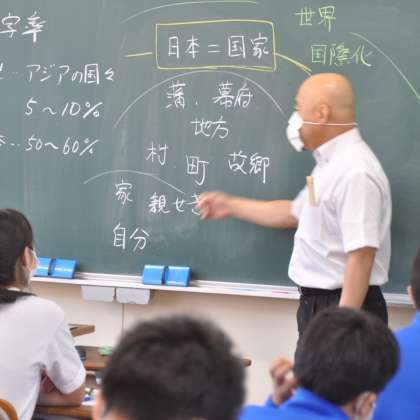 字率
‥アジアの国々
5〜10%
‥50〜60%
日本=国家
藩、幕府
地方
村、町 故郷
家 親せき
自分
世界
国際化